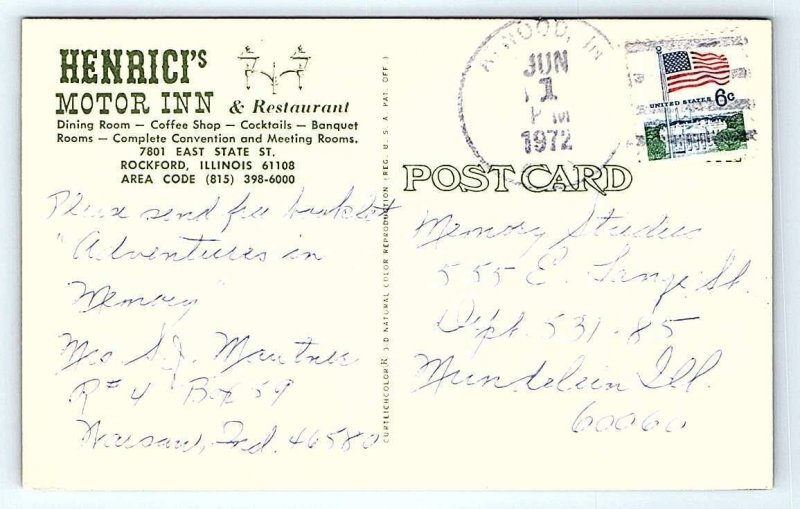 HENRICI'S
MOTOR INN & Restaurant
Dining Room — Coffee Shop — Cocktails — Banquet
Rooms — Complete Convention and Meeting Rooms.
7801 EAST STATE ST.
ROCKFORD, ILLINOIS 61108
AREA CODE (815) 398-6000
Please send free booklet
"Adventures in
Memory"
Mrs S.J.
R#4 Box 59
Warsaw, Ind. 46580
CURTEICHCOLOR® 3-D NATURAL COLOR REPRODUCTION (REG. U.S.A. PAT. OFF.)
WOOD, IN
JUN
1
PM
1972
UNITED STATES 6c
POST CARD
Memory Studies
555 E. Lange St.
Dept. 531-85
Mundelein Ill.
60060